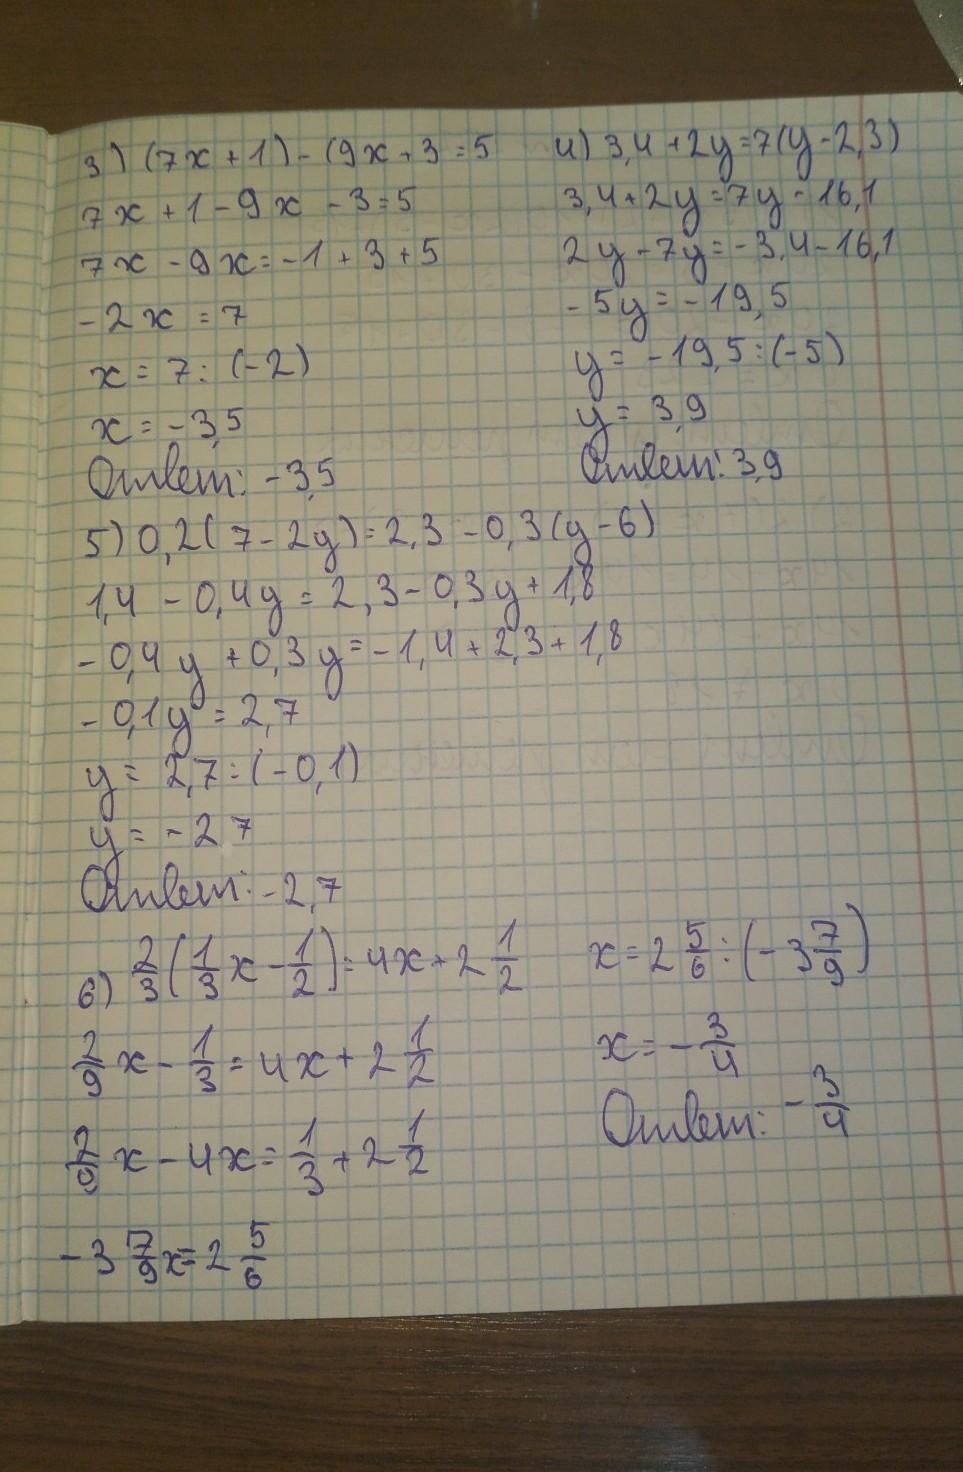 3) (7x + 1) - (9x + 3 = 5
7x + 1 - 9x - 3 = 5
7x - 9x = -1 + 3 + 5
-2x = 7
x = 7 : (-2)
x = -3,5
Ответ: -3,5
4) 3,4 + 2y = 7(y - 2,3)
3,4 + 2y = 7y - 16,1
2y - 7y = -3,4 - 16,1
-5y = -19,5
y = -19,5 : (-5)
y = 3,9
Ответ: 3,9
5) 0,2(7 - 2y) = 2,3 - 0,3(y - 6)
1,4 - 0,4y = 2,3 - 0,3y + 1,8
-0,4y + 0,3y = -1,4 + 2,3 + 1,8
-0,1y = 2,7
y = 2,7 : (-0,1)
y = -27
Ответ: -2,7
6) 2/3 (1/3 x - 1/2) = 4x + 2 1/2
2/9 x - 1/3 = 4x + 2 1/2
2/9 x - 4x = 1/3 + 2 1/2
-3 7/9 x = 2 5/6
x = 2 5/6 : (-3 7/9)
x = -3/4
Ответ: -3/4